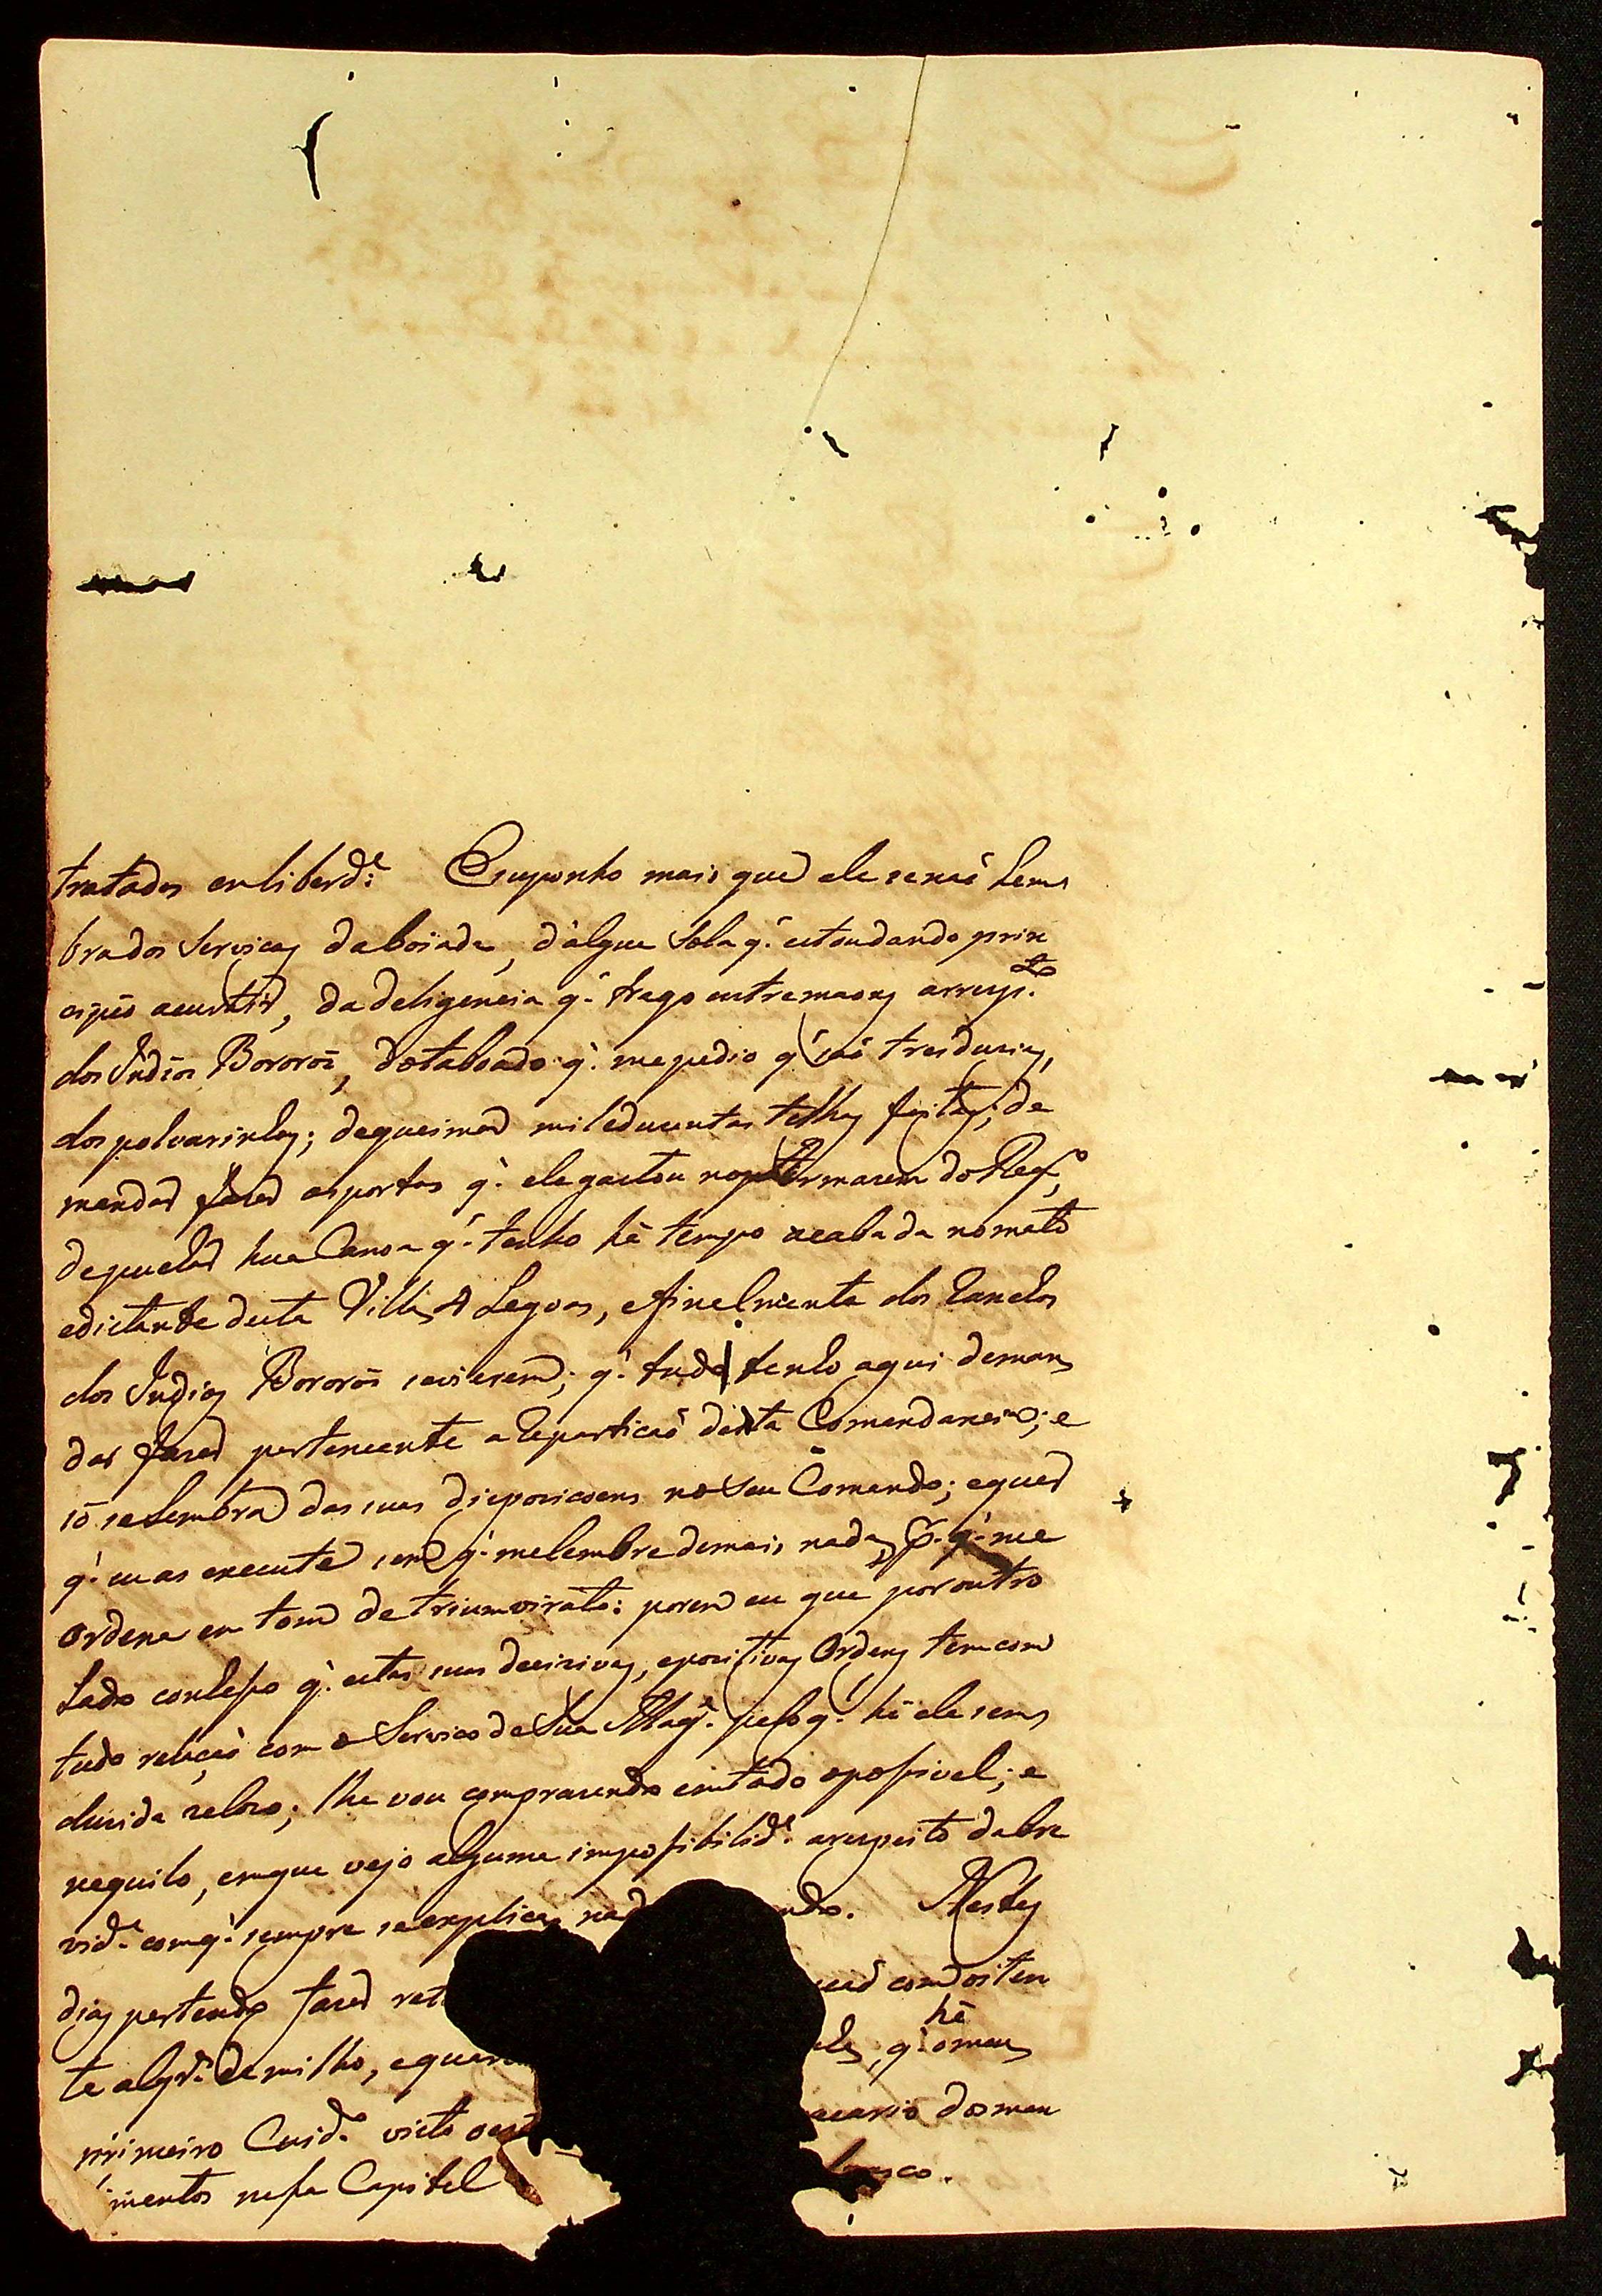 tratados em liberd.e Eu suponho mais que ele senaõ Lem
bra dos Serviços da boiada, d'algua Sola q' estou dando prin
cipio acurtir, da deligencia q' trago entre maons arresp.to
dos Indios Bororos, do taboado q' me pedio q' saõ tres duzias,
dos polvarinhos; de queimar mil e duzentas telhas feitas; de
mandar fazer as portas q' ele gastou no Armazem do Reg.o,
de puchar hua Canoa q' tenho hé tempo acabada no mato
e distante desta Villa 4 Legoas, e finelmente dos Ranchos
dos Indios Bororos se vierem; q' tudo tenho aqui deman
dar fazer pertencente a Repartiçaõ desta Comandancia; e
só se Lembra das suas dispoziçoens no Seu Comando; e quer
q' eu as execute sem q' me lembre de mais nada, p.r q' me
Ordena em tom de triumvirato: porem eu que por outro
Lado conheso q' estas suas decizivas, e pozitivas Ordens tem com
tudo relaçaõ com o Serviço de Sua Mag.e pelo q' hé ele sem
duvida zelozo; lhe vou comprazendo em tudo o possivel; e
naquilo, em que vejo alguma impossibilid.e arespeito da bre
vid.e com q' sempre se explica, nad ndo. Nestes
dias pertendo fazer com os ten
te alq.r de milho, e q' hé o meu
primeiro Cuid.o visto do s meu
imentos nessa Capital